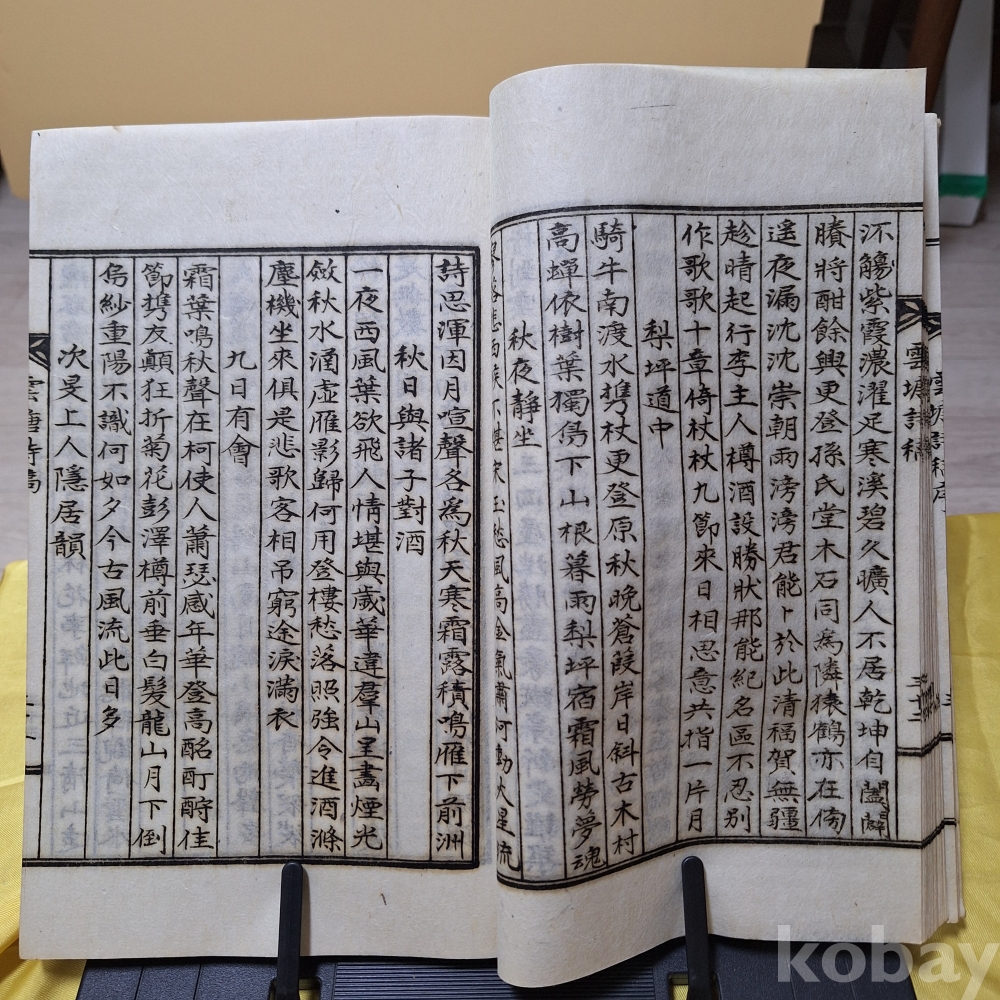 雲塘詩稿
环觴紫霞濃濯足寒溪碧久曠人不居乾坤自闔闢
賸將酣餘興更登孫氏堂木石同爲隣猿鶴亦在傍
遥夜漏沈沈崇朝雨滂滂君能卜於此清福賀無疆
趁晴起行李主人樽酒設勝狀那能紀名區不忍別
作歌歌十章倚杖九節來日相思意共指一片月
梨坪道中
騎牛南渡水携杖更登原秋晚蒼葭岸日斜古木村
高蟬依樹葉獨鳥下山根暮雨梨坪宿霜風勞夢魂
秋夜靜坐
悲 宋玉愁風高金氣肅河動火星流
詩思渾因月喧聲各爲秋天寒霜露積鳴雁下前洲
秋日與諸子對酒
一夜西風葉欲飛人情堪與歲華違羣山呈畵煙光
斂秋水涵虛雁影歸何用登樓愁落照強令進酒滌
塵機坐來俱是悲歌客相吊窮途淚滿衣
九日有會
霜葉鳴秋聲在柯使人蕭瑟感年華登高酩酊酧佳
節携友顛狂折菊花彭澤樽前垂白髮龍山月下倒
烏紗重陽不識何如夕今古風流此日多
次旻上人隱居韻
雲塘詩稿
kobay